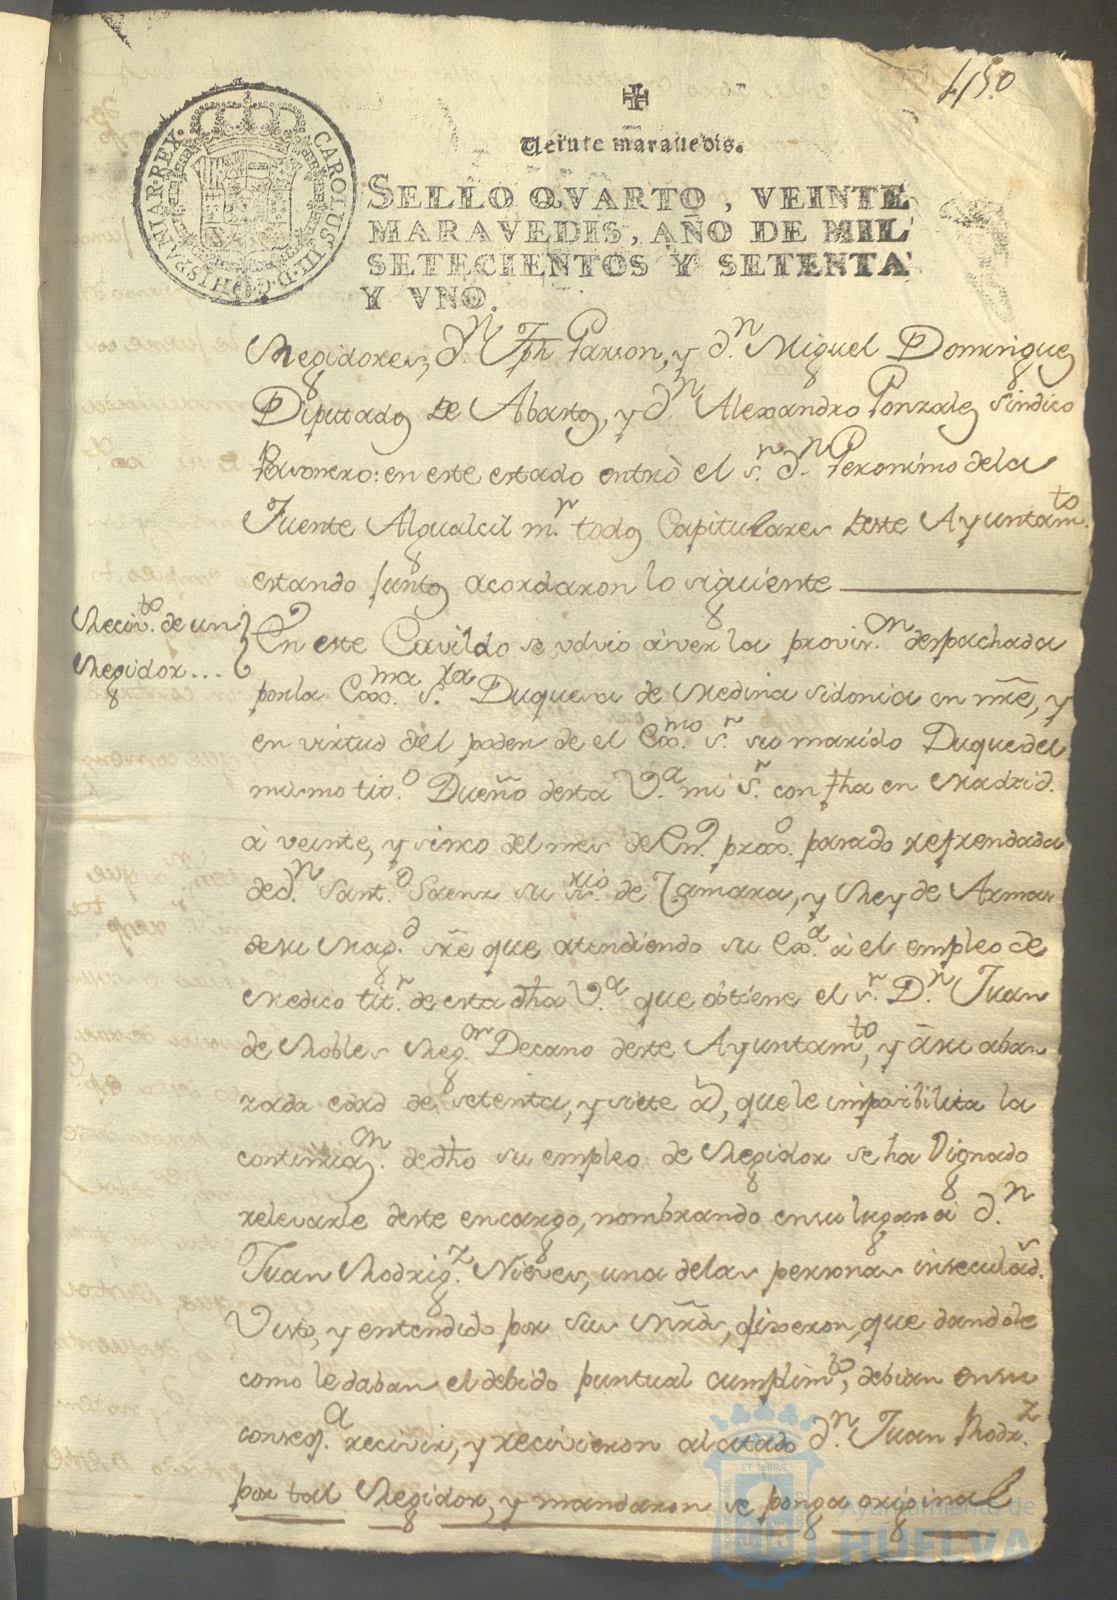 450
Veinte maravedis.
SELLO QVARTO, VEINTE
MARAVEDIS, AÑO DE MIL
SETECIENTOS Y SETENTA
Y VNO.
CAROLUS III·D·G·HISPANIAR·REX·
Regidores, d.n Jph Garzon, y d.n Miguel Dominguez
Diputtados de Abastos, y d.n Alexandro Gonzales Sindico
Personero: en este estado entrò el s.r d.n Geronimo de la
Fuente Alguacil m.r todos Capitulares deste Ayuntam.to
estando juntos acordaron lo siguiente
Reciv.to de un
Regidor...
En este Cavildo se volvio à ver la provis.on despachada
por la Exx.ma s.ra Duquesa de Medina Sidonia en nr̃e, y
en virtud del poder de el Exx.mo s.r su marido Duque del
mismo tit.o Dueño desta V.a mi s.r con fha en Madrid.
à veinte, y sinco del mes de En.o proxº. pasado refrendada
de d.n Sant.o Saenz su s.rio de Camara, y Rey de Armas
de su Mag.d sr̃e que atendiendo su Exx.a à el empleo de
Medico tit.r de esta dha V.a que obtiene el s.r D.n Juan
de Robles Reg.or Decano deste Ayuntam.to, y à su aban
zada edad de setenta, y siete a.s, que le imposibilita la
continuaz.on de dho su empleo de Regidor se ha Dignado
relevarle deste encargo, nombrando en su lugar a d.n
Juan Rodrig.z Nieves, una de las personas inseculad.s
Visto, y entendido por sus mrds, dixeron, que dandole
como le daban el debido puntual cumplim.to, debian en su
conseq.a recivir, y recivieron al citado d.n Juan Rodr.z
por tal Regidor, y mandaron se ponga original
Ayuntamiento de
HUELVA